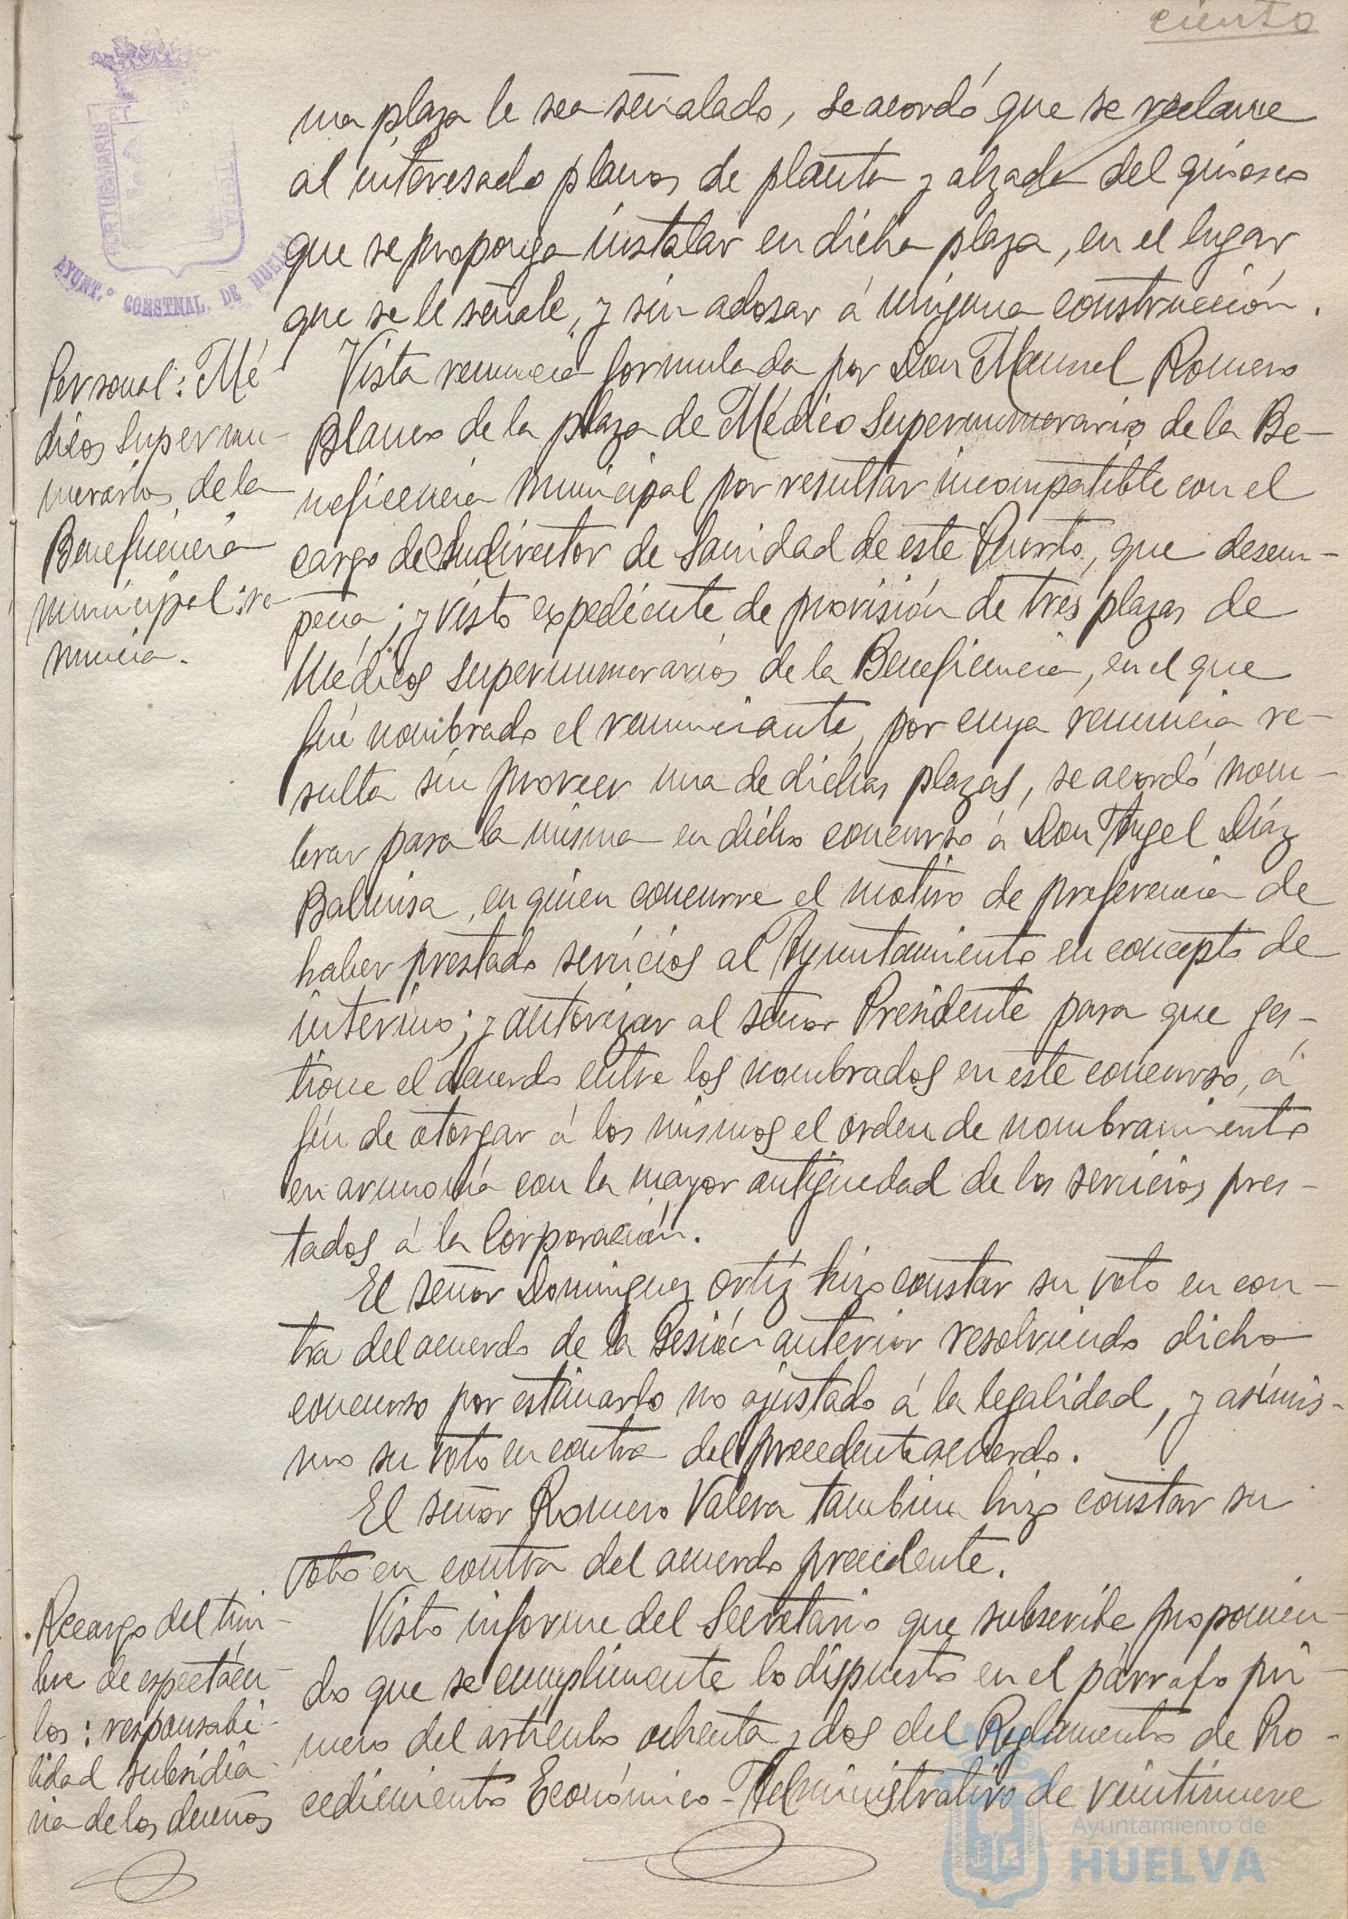 ciento
una plaza le sea señalado, se acordó que se reclame
al interesado planos de planta y alzada del quiosco
que se proponga instalar en dicha plaza, en el lugar
que se le señale, y sin adosar á ninguna construcción.
PORTUS MARIS
AYUNT.º CONSTNAL. DE HUELVA
Personal: Mé-
dicos supernu-
merarios de la
Beneficencia
municipal: re-
nuncia.
Vista renuncia formulada por Don Manuel Romero
Blanco de la plaza de Médico Supernumerario de la Be-
neficencia municipal por resultar incompatible con el
cargo de Subdirector de Sanidad de este Puerto, que desem-
peña; y visto expediente de provisión de tres plazas de
Médicos supernumerarios de la Beneficencia, en el que
fué nombrado el renunciante, por cuya renuncia re-
sulta sin proveer una de dichas plazas, se acordó nom-
brar para la misma en dicho concurso á Don Angel Díaz
en quien concurre el motivo de preferencia de
haber prestado servicios al Ayuntamiento en concepto de
interino; y autorizar al señor Presidente para que ges-
tione el acuerdo entre los nombrados en este concurso, á
fin de otorgar á los mismos el orden de nombramiento
en armonía con la mayor antiguedad de los servicios pres-
tados á la Corporación.
El señor Dominguez Ortíz hizo constar su voto en con-
tra del acuerdo de la sesión anterior resolviendo dicho
concurso por estimarlo no ajustado á la legalidad, y asimis-
mo su voto en contra del precedente acuerdo.
El señor Romero Valera tambien hizo constar su
voto en contra del acuerdo precedente.
Recargo del tim-
bre de espectácu-
los: responsabi-
lidad subsidia-
ria de los dueños
Visto informe del Secretario que subscribe proponien-
do que se cumplimente lo dispuesto en el párrafo pri-
mero del artículo ochenta y dos del Reglamento de Pro-
cedimiento Económico-Administrativo de veintinueve
Ayuntamiento de
HUELVA